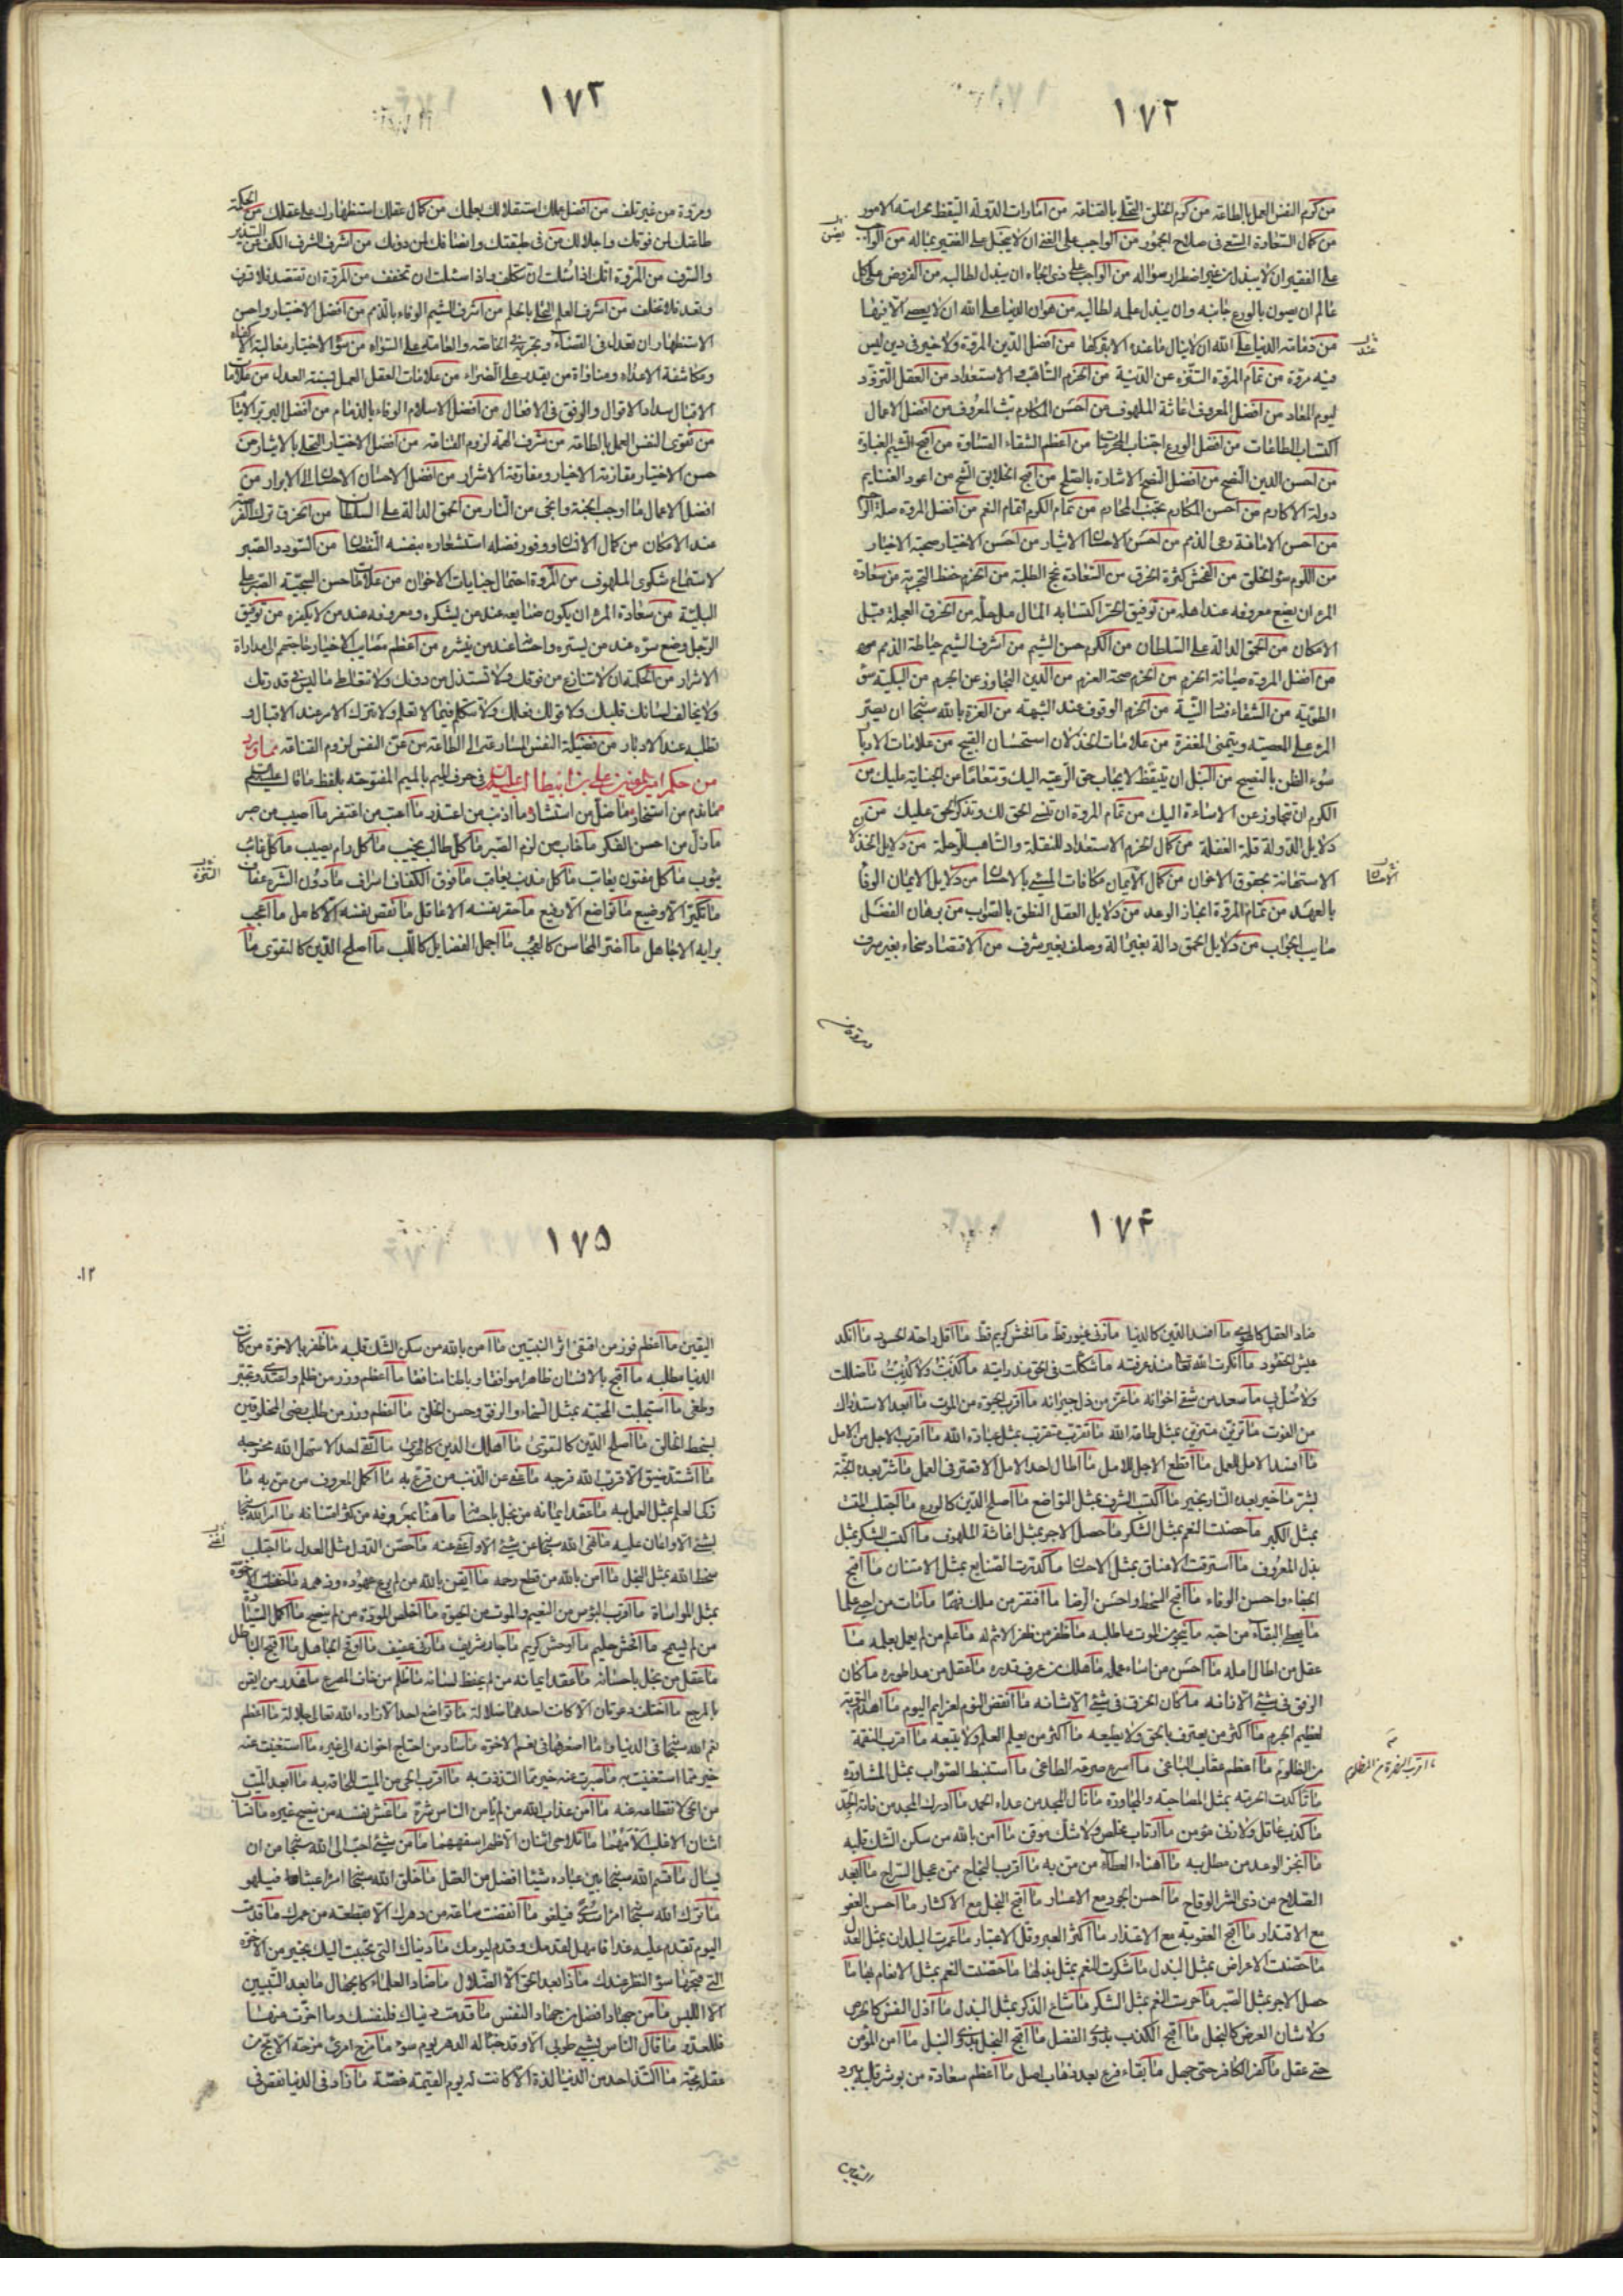 ١٧٢
من كرم النفس العمل بالطاعة من كرم الخلق التحلي بالقناعة من امارات الدولة التيقظ لحراسة الامور
من كمال السعادة السعي في صلاح الجمهور من الواجب على الغني ان لا يبخل على الفقير بماله من الواجب
على الفقير ان لا يبذل من غير اضطرار سؤاله من الواجب على ذي الجاه ان يبذله لطالبه من الفروض على كل
عالم ان يصون بالورع جانبه وان يبذل علمه لطالبه من هوان الدنيا على الله ان لا يعصى الا فيها
من دمامة الدنيا على الله ان لا ينال ما عنده الا بتركها من افضل الدين المروة ولا خير في دين ليس
فيه مروة من تمام المروة التنزه عن الدنية من الحزم التاهب والاستعداد من العقل التزود
ليوم المعاد من افضل المعروف اغاثة الملهوف من احسن المكارم بث المعروف من افضل الاعمال
اكتساب الطاعات من افضل الورع اجتناب المحرمات من اعظم الشقاء القساوة من اقبح الشيم الغباوة
من احسن الدين النصح من افضل النصح الاشارة بالصلح من اقبح الخلايق الشح من اعود الغنايم
دولة الاكارم من احسن المكارم تجنب المحارم من تمام الكرم اتمام النعم من افضل المروة صلة الرحم
من احسن الامانة رعى الذمم من احسن الاحسان الايثار من احسن الاختيار صحبة الاخيار
من اللؤم سوء الخلق من الفحش كثرة الخرق من السعادة نجح الطلبة من الحزم حفظ التجربة من سعادة
المرء ان يضع معروفه عند اهله من توفيق الحر اكتسابه المال من حله من الخرق العجلة قبل
الامكان من الحمق الدالة على السلطان من الكرم حسن الشيم من اشرف الشيم حياطة الذمم
من افضل المروة صيانة الحزم من الحزم صحة العزم من الدين التجاوز عن الجرم من الشقاء سوء
الطوية من الشقاء فساد النية من الحزم الوقوف عند الشبهة من الغرة بالله سبحانه ان يصر
المرء على المعصية ويتمنى المغفرة من علامات الخذلان استحسان القبيح من علامات الادبار
سوء الظن بالنصيح من النبل ان تتيقظ لايجاب حق الرعية اليك وتتغابى عن الجناية عليك من
الكرم ان تتجاوز عن الاساءة اليك من تمام المروة ان تنسى الحق لك وتذكر الحق عليك من
دلايل الدولة قلة الغفلة من كمال الحزم الاستعداد للنقلة والتاهب للرحلة من دلايل الخذلان
الاستهانة بحقوق الاخوان من كمال الايمان مكافات المسيء بالاحسان من دلايل الايمان الوفا
بالعهد من تمام المروة انجاز الوعد من دلايل العقل النطق بالصواب من برهان الفضل
صايب الجواب من دلايل الحمق دالة بغير الة وصلف بغير شرف من الاقتصاد سخاء بغير سرف
ومروة من
١٧٣
ومروة من غير تلف من افضل عملك استقلالك بعملك من كمال عقلك استظهارك على عقلك من الحكمة
طاعتك لمن فوقك واجلالك من في طبقتك وانصافك لمن دونك من اشرف الشرف الكف عن التبذير
والسرف من المروة انك اذا سئلت ان تتكلف واذا سئلت ان تخفف من المروة ان تقتصد فلا تسرف
وتعد فلا تخلف من اشرف العلم التحلي بالحلم من اشرف الشيم الوفاء بالذمم من افضل الاختيار واحسن
الاستظهار ان تعدل في القضاء وتجريه في الخاصة والعامة على السواء من سوء الاختيار مغالبة الاكفاء
ومكاشفة الاعداء ومناواة من يقدر على الضراء من علامات العقل العمل بسنة العدل من علامات
الاقبال سداد الاقوال والرفق في الافعال من افضل الاسلام الوفاء بالذمام من افضل البر بر الايتام
من تقوى النفس العمل بالطاعة من شرف الهمة لزوم القناعة من افضل الاختيار التحلي بالايثار من
حسن الاختيار مقارنة الاخيار ومفارقة الاشرار من افضل الاحسان الاحسان الى الابرار من
افضل الاعمال ما اوجب الجنة وانجى من النار من الحمق الدالة على السلطان من الخرق ترك الفرصة
عند الامكان من كمال الانسان ووفور فضله استشعاره بنفسه النقصان من السودد الصبر
لاستماع شكوى الملهوف من المروة احتمال جنايات الاخوان من علامات حسن السجية الصبر على
البلية من سعادة المرء ان يكون صنايعه عند من يشكره ومعروفه عند من لا يكفره من توفيق
الرجل وضع سره عند من يستره واحسانه عند من ينشره من اعظم مصايب الاخيار حاجتهم الى مداراة
الاشرار من الحكمة ان لا تنازع من فوقك ولا تستذل من دونك ولا تتعاط ما ليس في قدرتك
ولا يخالف لسانك قلبك ولا قولك فعلك ولا تتكلم فيما لا تعلم ولا تترك الامر عند الاقبال و
تطلبه عند الادبار من فضيلة النفس المسارعة الى الطاعة من عز النفس لزوم القناعة مما ورد
من حكم امير المؤمنين علي بن ابيطالب عليه السلام في حرف الميم بالميم المفتوحة بلفظ ما قال عليه السلم
ما ندم من استخار ما ضل من استشار ما اذنب من اعتذر ما اعتب من اغتفر ما اصيب من صبر
ما ذل من احسن الفكر ما خاب من لزم الصبر ما كل طالب يخيب ما كل رام يصيب ما كل غائب
يؤب ما كل مفتون يعاتب ما كل مذنب يعاقب ما فوق الكفاف اسراف ما دون الشره عفاف
ما تكبر الا وضيع ما تواضع الا رفيع ما حقر نفسه الا عاقل ما نقص نفسه الا كامل ما اعجب
برايه الا جاهل ما اضر المحاسن كالعجب ما اجمل الفضايل كاللب ما اصلح الدين كالتقوى ما
١٧٤
ضاد العقل كالهوى ما افسد الدين كالدنيا ما زنى غيور قط ما افحش كريم قط ما اقل راحة الحسود ما انكد
عيش الحقود ما انكرت الله تعالى منذ عرفته ما شككت في الحق منذ رايته ما كذبت ولا كذبت ما ضللت
ولا ضل بي ما سعد من شقى اخوانه ما عز من ذل جيرانه ما اقرب الحيوة من الموت ما ابعد الاستدراك
من الفوت ما تزين متزين بمثل طاعة الله ما تقرب متقرب بمثل عبادة الله ما اقرب الاجل من الامل
ما افسد الامل للعمل ما اقطع الاجل للامل ما اطال احد الامل الا قصر في العمل ما شر بعده الجنة
بشر ما خير بعده النار بخير ما اكتسب الشرف بمثل التواضع ما اصلح الدين كالورع ما اجتلب المقت
بمثل الكبر ما حصنت النعم بمثل الشكر ما حصل الاجر بمثل اغاثة الملهوف ما اكتسب الشكر بمثل
بذل المعروف ما استرقت الاعناق بمثل الاحسان ما كدرت الصنايع بمثل الامتنان ما اقبح
الجفاء واحسن الوفاء ما اقبح السخط واحسن الرضا ما افتقر من ملك فهما ما مات من احيى علما
ما يعطى البقاء من احبه ما ينجو من الموت من طلبه ما ظفر من ظفر الاثم به ما علم من لم يعمل بعلمه ما
عقل من اطال امله ما احسن من اساء عمله ما هلك من عرف قدره ما عقل من عدا طوره ما كان
الرفق في شيء الا زانه ما كان الخرق في شيء الا شانه ما انقض النوم لعزايم اليوم ما اهدم التوبة
لعظيم الجرم ما اكثر من يعترف بالحق ولا يطيعه ما اكثر من يعلم العلم ولا يتبعه ما اقرب النقمة
من الظلوم ما اعظم عقاب الباغي ما اسرع صرعة الطاغي ما استنبط الصواب بمثل المشاورة
ما تاكدت الحرمة بمثل المصاحبة والمجاورة ما نال المجد من عداه الحمد ما ادرك المجد من فاته الجد
ما كذب عاقل ولا زنى مؤمن ما ارتاب مخلص ولا شك موقن ما آمن بالله من سكن الشك قلبه
ما انجز الوعد من مطل به ما اهنا العطاء من من به ما اقرب النجاح ممن عجل السراح ما ابعد
الصلاح من ذى الشر الوقاح ما احسن الجود مع الاعسار ما اقبح البخل مع الاكثار ما احسن العفو
مع الاقتدار ما اقبح العقوبة مع الاعتذار ما اكثر العبر وقل الاعتبار ما عمرت البلدان بمثل العدل
ما حصنت الاعراض بمثل البذل ما شكرت النعم بمثل بذلها ما حصنت النعم بمثل الانعام بها ما
حصل الاجر بمثل الصبر ما حرست النعم بمثل الشكر ما شاع الذكر بمثل البذل ما اذل النفس كالحرص
ولا شان العرض كالبخل ما اقبح الكذب بذوي الفضل ما اقبح البخل بذوي النبل ما امن المؤمن
حتى عقل ما كفر الكافر حتى جهل ما بقاء فرع بعد ذهاب اصل ما اعظم سعادة من بوشر قلبه ببرد
ما اقرب النصرة من المظلوم
اليقين
١٧٥
اليقين ما اعظم فوز من اقتفى اثر النبيين ما آمن بالله من سكن الشك قلبه ما ظفر بالاخرة من كانت
الدنيا مطلبه ما اقبح بالانسان ظاهرا موافقا وباطنا منافقا ما اعظم وزر من ظلم واعتدى وتجبر
وطغى ما استجلبت المحبة بمثل السخاء والرفق وحسن الخلق ما اعظم وزر من طلب رضى المخلوقين
بسخط الخالق ما اصلح الدين كالتقوى ما اهلك الدين كالهوى ما اتقى احد الا سهل الله مخرجه
ما اشتد ضيق الا قرب الله فرجه ما عفى عن الذنب من قرع به ما اكمل المعروف من من به ما
زكى العلم بمثل العمل به ما عقد ايمانه من بخل باحسانه ما هنا بمعروفه من كثر امتنانه ما امر الله سبحانه
بشيء الا واعان عليه ما نهى الله سبحانه عن شيء الا واغنى عنه ما حصن الدول مثل العدل ما اجتلب
سخط الله بمثل البخل ما آمن بالله من قطع رحمه ما ايقن بالله من لم يرع عهوده وذممه ما حفظت الاخوة
بمثل المواساة ما اقرب البؤس من النعيم والموت من الحيوة ما اخلص المودة من لم ينصح ما اكمل السيادة
من لم يسمح ما افحش حليم ما اوحش كريم ما جار شريف ما زنى عفيف ما اوقح الجاهل ما اقبح الباطل
ما عقل من بخل باحسانه ما عقد ايمانه من لم يحفظ لسانه ما ظلم من خاف المصرع ما غدر من ايقن
بالمرجع ما اختلفت دعوتان الا كانت احدهما ضلالة ما تواضع احد الا زاده الله تعالى جلالة ما اعظم
نعم الله سبحانه في الدنيا وما اصغرها في نعم الاخرة ما ساد من احتاج اخوانه الى غيره ما استغنيت عنه
خير مما استغنيت به ما صبرت عنه خير مما التذذت به ما اقرب الحي من الميت للحاقه به ما ابعد الميت
من الحي لانقطاعه عنه ما آمن عذاب الله من لم يأمن الناس شره ما غش نفسه من ينصح غيره ما تساب
اثنان الا غلب الأمهما ما تلاحى اثنان الا ظهر اسفههما ما من شيء احب الى الله سبحانه من ان
يسال ما قسم الله سبحانه بين عباده شيئا افضل من العقل ما خلق الله سبحانه امرا عبثا فيلهو
ما ترك الله سبحانه امرا سدى فيلغو ما انقضت ساعة من دهرك الا بقطعة من عمرك ما قدمت
اليوم تقدم عليه غدا فامهد لقدمك وقدم ليومك ما دنياك التي تحببت اليك بخير من الاخرة
التي قبحها سوء النظر عندك ما ذا بعد الحق الا الضلال ما ضاد العلماء كالجهال ما بعد النبيين
الا اللبس ما من جهاد افضل من جهاد النفس ما قدمت من دنياك فلنفسك وما اخرت منها
فللعدو ما قال الناس لشيء طوبى الا وقد خبا له الدهر يوم سوء ما مزح امرئ مزحة الا مج من
عقله مجة ما التذ احد من الدنيا لذة الا كانت له يوم القيمة غصة ما زاد في الدنيا نقص في